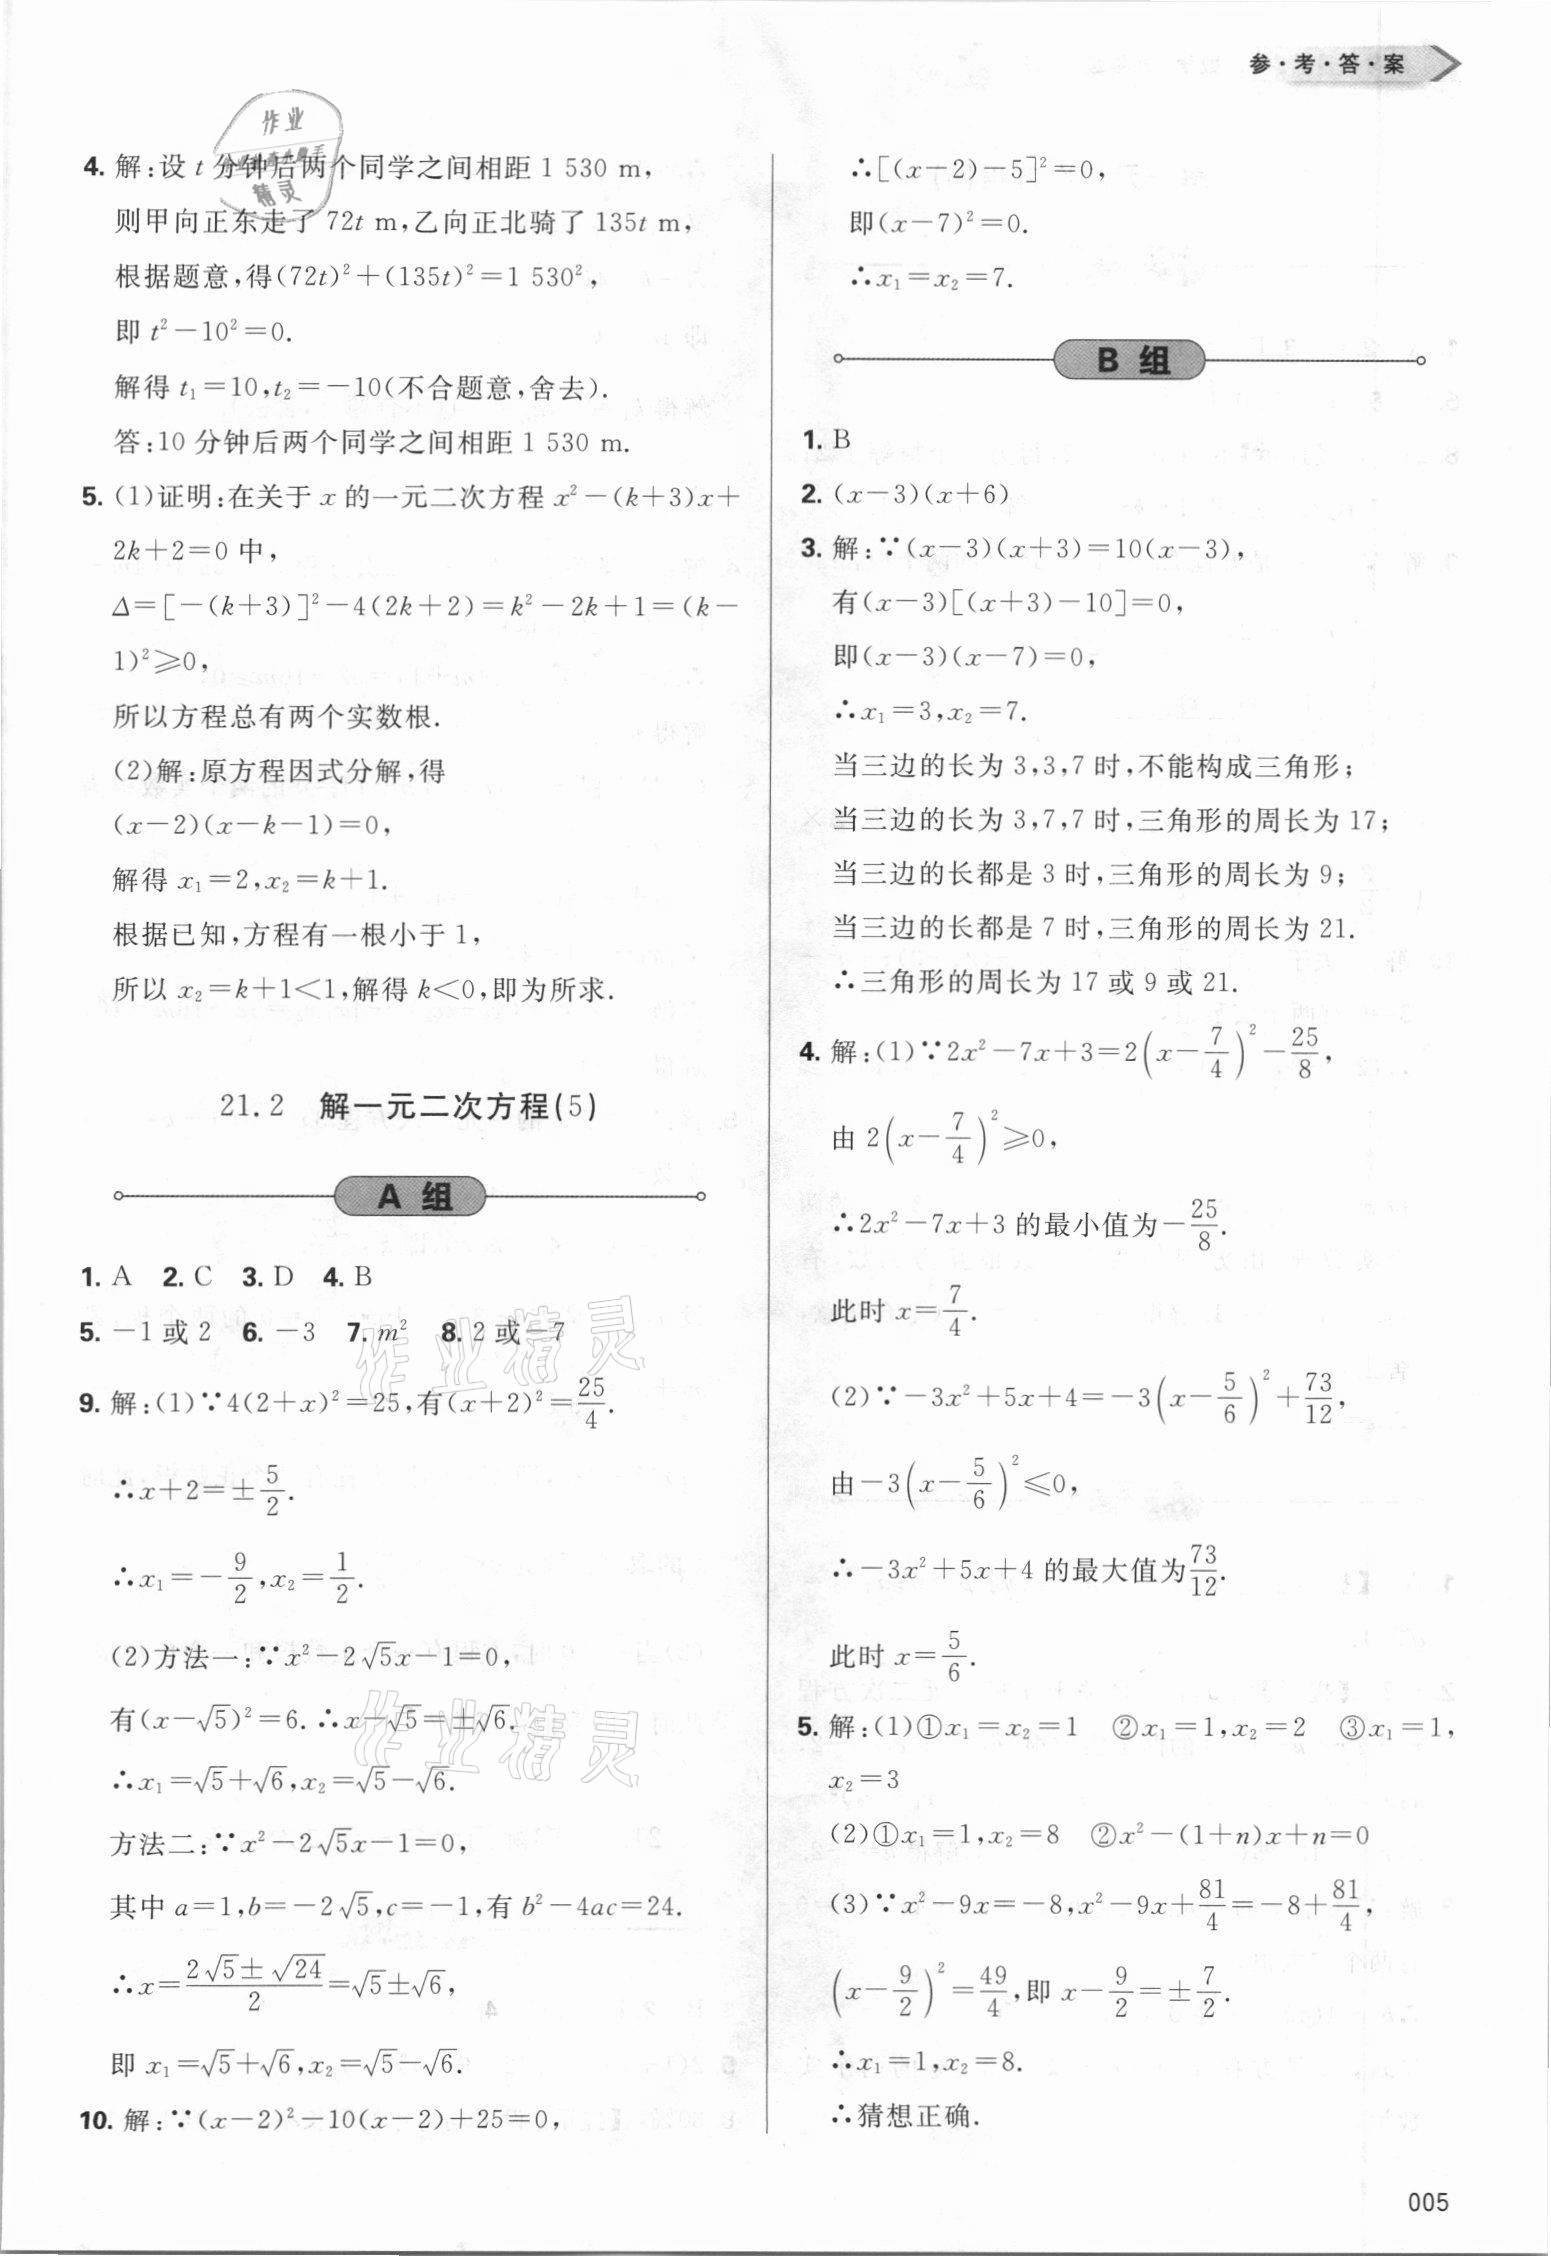 参·考·答·案
4. 解:设 t 分钟后两个同学之间相距 1 530 m,
则甲向正东走了 72t m,乙向正北骑了 135t m,
根据题意,得(72t)²+(135t)²=1 530²,
即 t²-10²=0.
解得 t₁=10,t₂=-10(不合题意,舍去).
答:10 分钟后两个同学之间相距 1 530 m.
5. (1)证明:在关于 x 的一元二次方程 x²-(k+3)x+
2k+2=0 中,
Δ=[-(k+3)]²-4(2k+2)=k²-2k+1=(k-
1)²≥0,
所以方程总有两个实数根.
(2)解:原方程因式分解,得
(x-2)(x-k-1)=0,
解得 x₁=2,x₂=k+1.
根据已知,方程有一根小于 1,
所以 x₂=k+1<1,解得 k<0,即为所求.
21.2 解一元二次方程(5)
A 组
1. A 2. C 3. D 4. B
5. -1 或 2 6. -3 7. m² 8. 2 或-7
9. 解:(1)∵4(2+x)²=25,有(x+2)²=25/4.
∴x+2=±5/2.
∴x₁=-9/2,x₂=1/2.
(2)方法一:∵x²-2√5x-1=0,
有(x-√5)²=6.∴x-√5=±√6.
∴x₁=√5+√6,x₂=√5-√6.
方法二:∵x²-2√5x-1=0,
其中 a=1,b=-2√5,c=-1,有 b²-4ac=24.
∴x=(2√5±√24)/2=√5±√6,
即 x₁=√5+√6,x₂=√5-√6.
10. 解:∵(x-2)²-10(x-2)+25=0,
∴[(x-2)-5]²=0,
即(x-7)²=0.
∴x₁=x₂=7.
B 组
1. B
2. (x-3)(x+6)
3. 解:∵(x-3)(x+3)=10(x-3),
有(x-3)[(x+3)-10]=0,
即(x-3)(x-7)=0,
∴x₁=3,x₂=7.
当三边的长为 3,3,7 时,不能构成三角形;
当三边的长为 3,7,7 时,三角形的周长为 17;
当三边的长都是 3 时,三角形的周长为 9;
当三边的长都是 7 时,三角形的周长为 21.
∴三角形的周长为 17 或 9 或 21.
4. 解:(1)∵2x²-7x+3=2(x-7/4)²-25/8,
由 2(x-7/4)²≥0,
∴2x²-7x+3 的最小值为-25/8.
此时 x=7/4.
(2)∵-3x²+5x+4=-3(x-5/6)²+73/12,
由-3(x-5/6)²≤0,
∴-3x²+5x+4 的最大值为73/12.
此时 x=5/6.
5. 解:(1)①x₁=x₂=1 ②x₁=1,x₂=2 ③x₁=1,
x₂=3
(2)①x₁=1,x₂=8 ②x²-(1+n)x+n=0
(3)∵x²-9x=-8,x²-9x+81/4=-8+81/4,
(x-9/2)²=49/4,即 x-9/2=±7/2.
∴x₁=1,x₂=8.
∴猜想正确.
005
作业
精灵
作业精灵
作业精灵